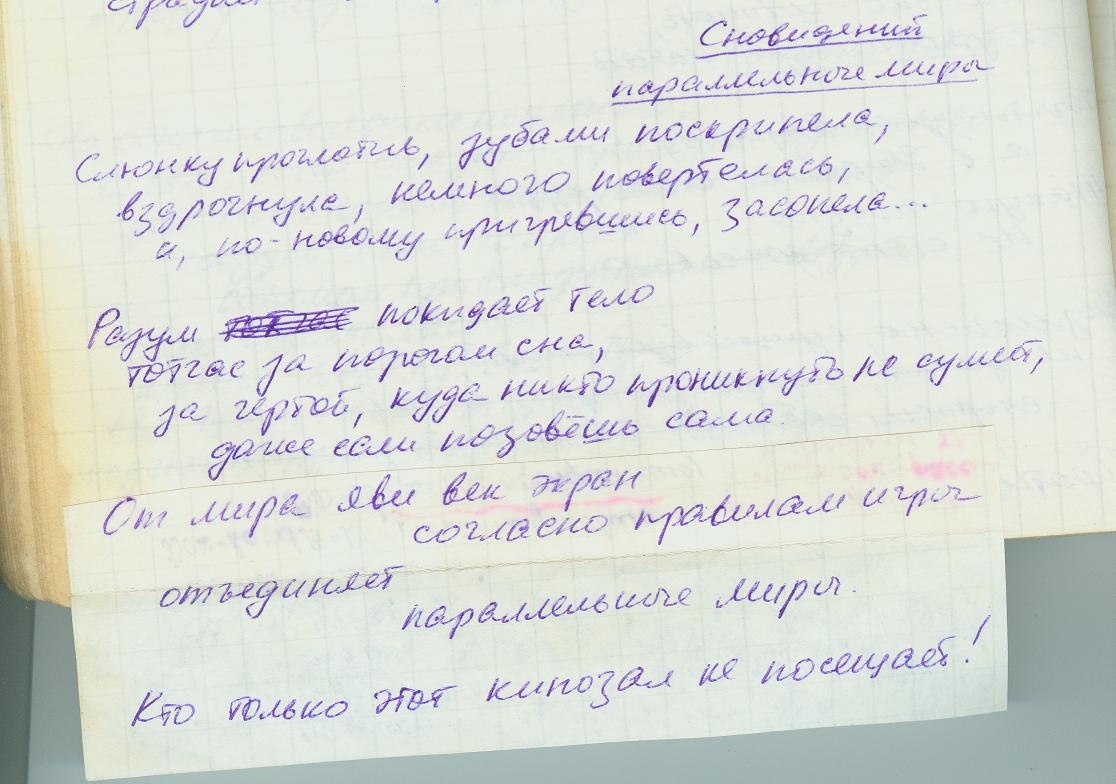 Сновидений
параллельные миры
Слюнку проглотив, зубами поскрипела,
вздрогнула, немного повертелась,
и, по-новому пригревшись, засопела...
Разум покидает тело
тотчас за порогом сна,
за чертой, куда никто проникнуть не сумеет,
даже если позовёшь сама.
От мира яви век экран
согласно правилам игры
отъединяет
параллельные миры.
Кто только этот кинозал не посещает!